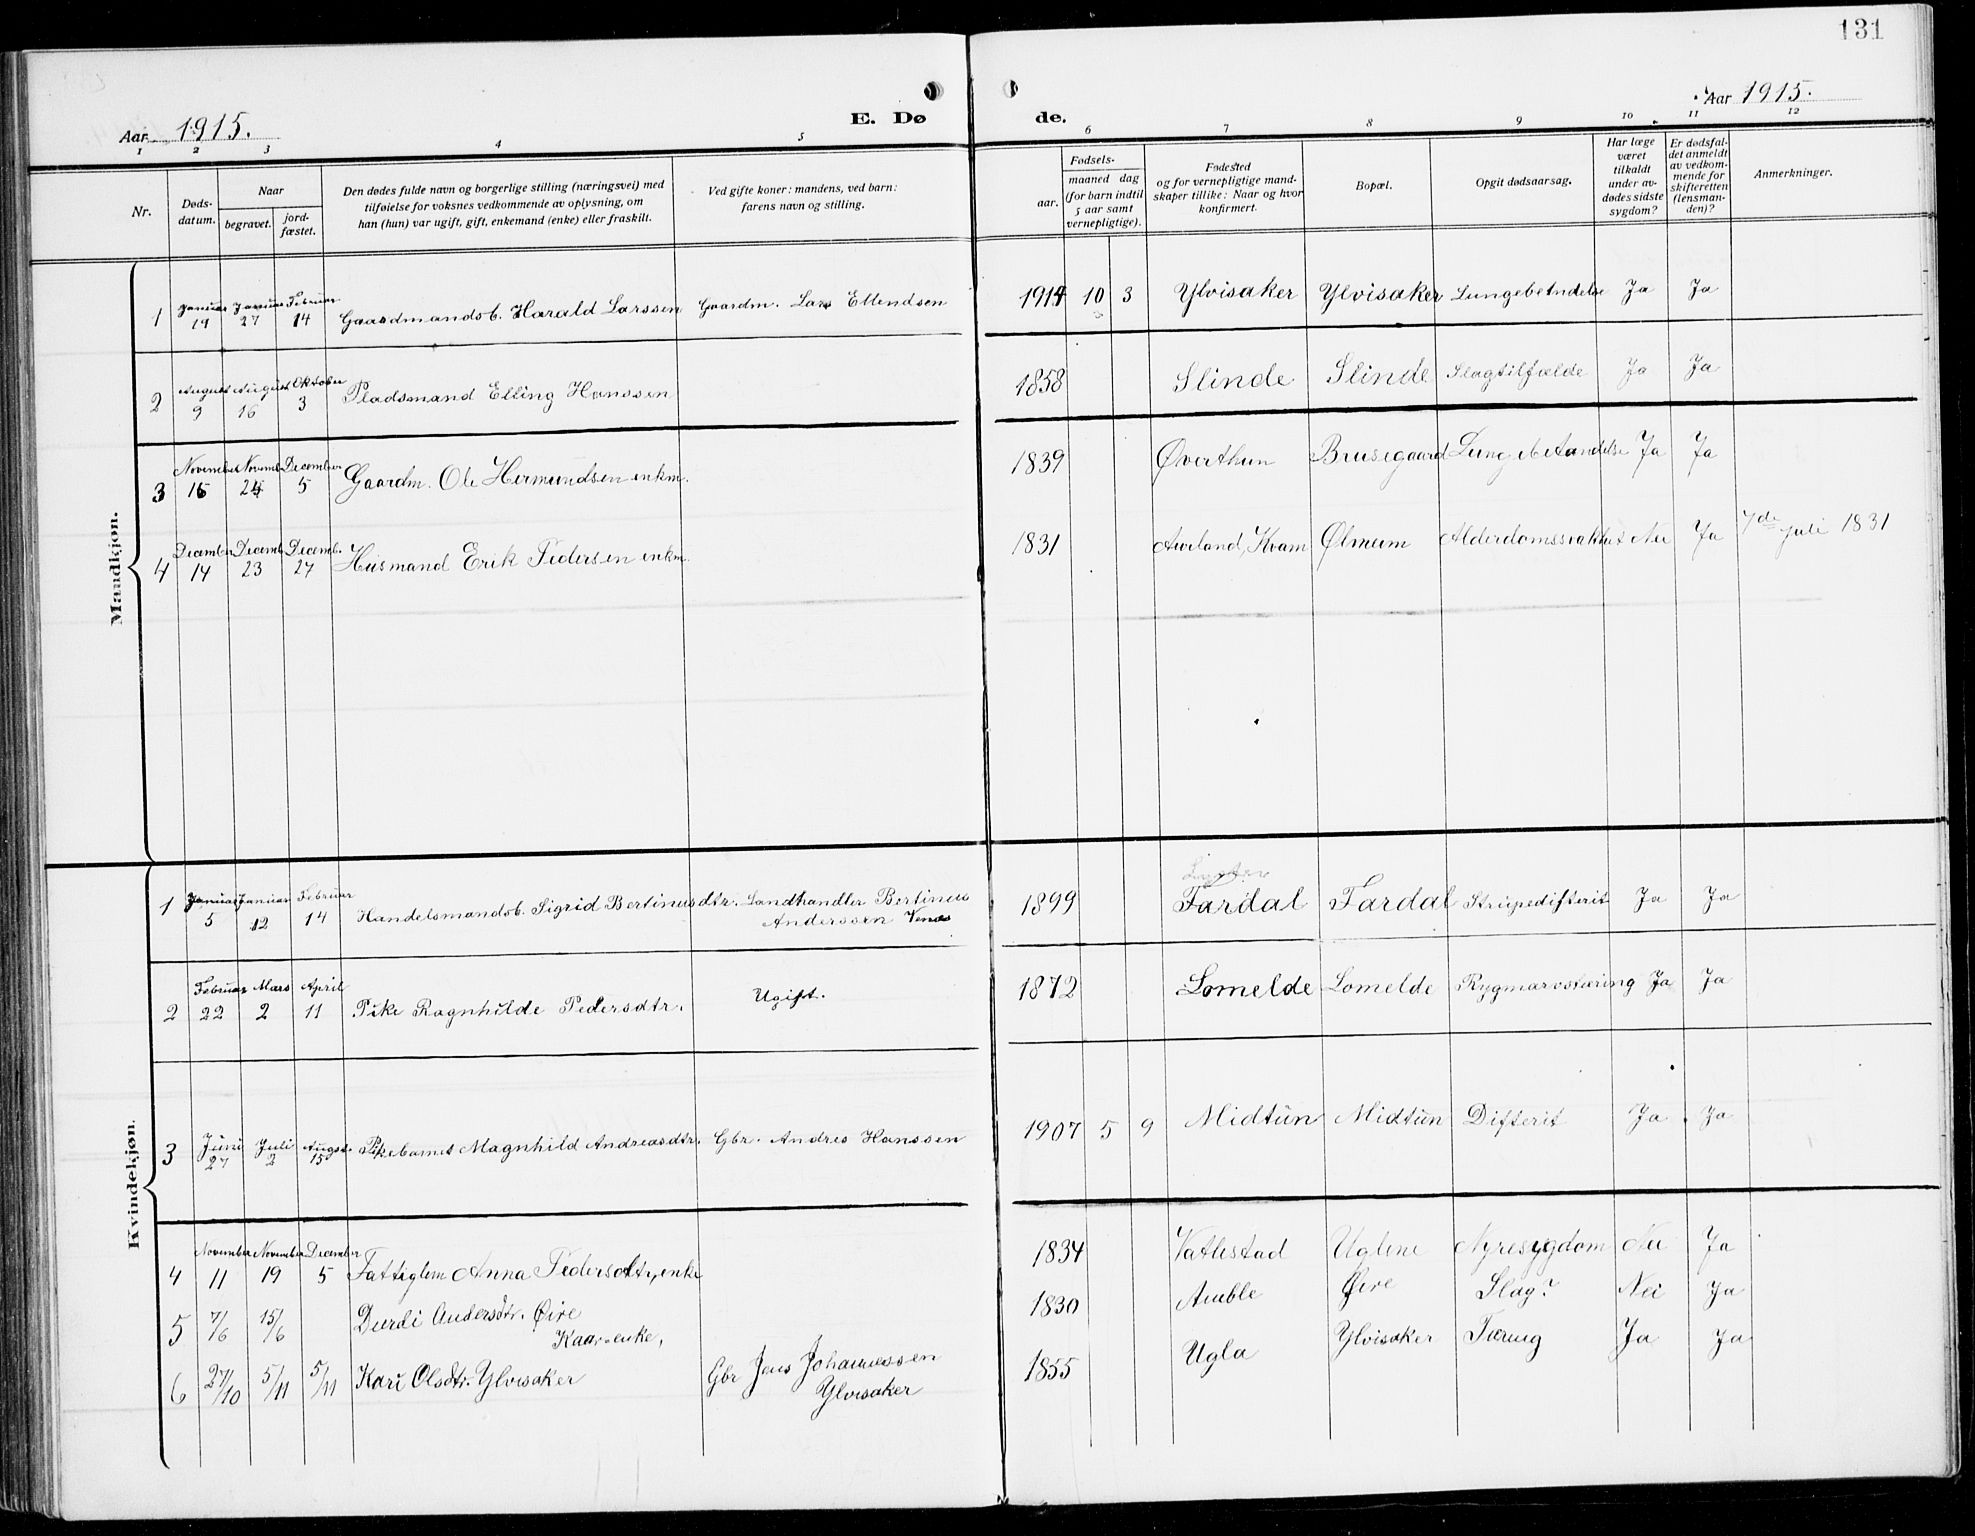 131
Aar 1915. E. Dø de. Aar 1915.
1 2 3 4 5 6 7 8 9 10 11 12
Nr.
Døds-
datum.
Naar
begravet.
jord-
fæstet.
Den dødes fulde navn og borgerlige stilling (næringsvei) med
tilføielse for voksnes vedkommende av oplysning, om
han (hun) var ugift, gift, enkemand (enke) eller fraskilt.
Ved gifte koner: mandens, ved barn:
farens navn og stilling.
Fødsels-
aar.
maaned dag
(for barn indtil
5 aar samt
vernepligtige).
Fødested
og for vernepligtige mand-
skaper tillike: Naar og hvor
konfirmert.
Bopæl.
Opgit dødsaarsag.
Har læge
været
tilkaldt
under av-
dødes sidste
sygdom?
Er dødsfal-
det anmeldt
av vedkom-
mende for
skifteretten
(lensman-
den)?
Anmerkninger.
Mandkjøn.
1 Januar 19 Januar 27 Februar 14 Gaardmandsb. Harald Larssen Gaardm. Lars Ellendsen 1914 10 3 Ylvisaker Ylvisaker Lungebetndelse Ja Ja
2 August 9 August 16 Oktober 3 Pladsmand Elling Hanssen 1858 Slinde Slinde Slagtilfælde Ja Ja
3 November 16 Novemb. 24 December 5 Gaardm. Ole Hermundsen enkm. 1839 Øverthun Brusegaard Lungebetændelse Ja Ja
4 December 14 Decemb. 23 Decemb. 27 Husmand Erik Pedersen enkm. 1831 Aurland, Kvam Ølmeim Alderdomssvakhet Nei Ja 7de juli 1831
Kvindekjøn.
1 Januar 5 Januar 12 Februar 14 Handelsmandsb. Sigrid Bertinusdtr. Landhandler Bertinus
Anderssen Venæs 1899 Fardal Fardal Strupedifterit Ja Ja
2 Februar 22 Mars 2 April 11 Pike Ragnhilde Pedersdtr. Ugift. 1872 Lomelde Lomelde Rygmarvstæring Ja Ja
3 Juni 27 Juli 2 Augst. 15 Pikebarnet Magnhild Andreasdtr. Gbr. Andres Hanssen 1907 5 9 Midtun Midtun Difterit Ja Ja
4 November 11 November 19 December 5 Fattiglem Anna Pedersdtr, enke 1834 Vatlestad Uglene Nyresygdom Nei Ja
5 7/6 15/6 Durdi Andersdtr. Øire
Kaar-enke, 1830 Amble Øire Slag? Nei Ja
6 27/10 5/11 5/11 Kari Olsdtr. Ylvisaker Gbr Jens Johannessen
Ylvisaker 1855 Ugla Ylvisaker Tæring Ja Ja